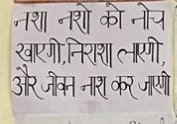 नशा नशों को नोच
खाएगी, निराशा लाएगी,
और जीवन नाश कर जाएगी